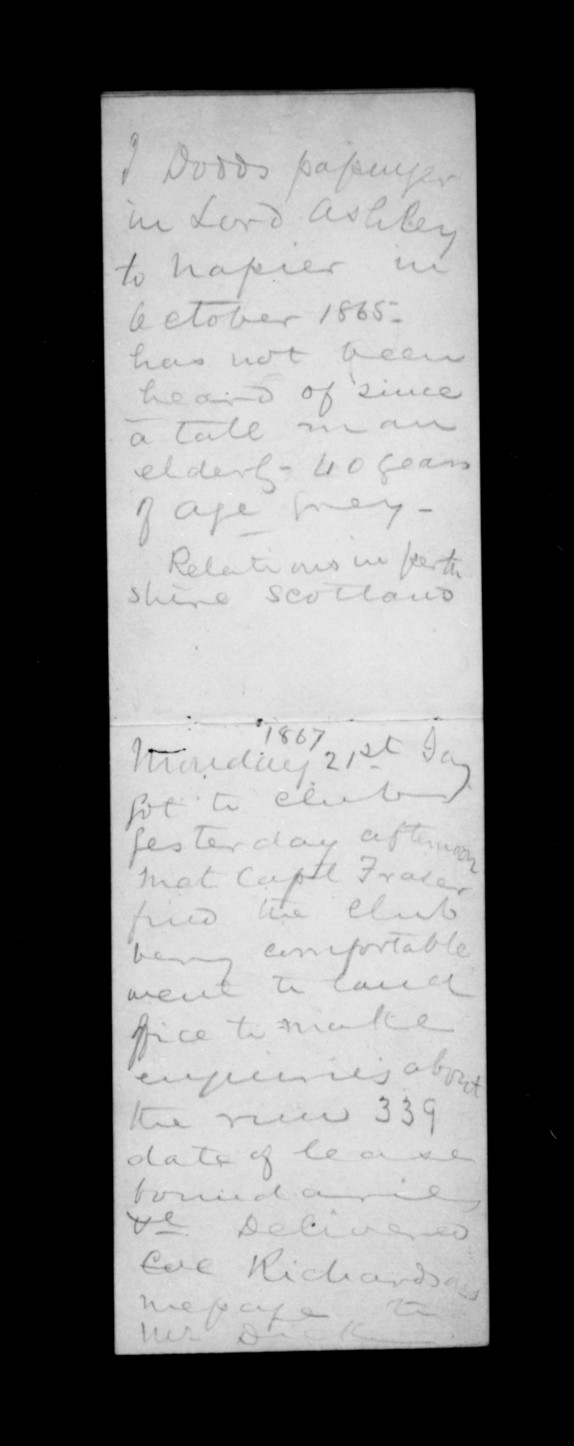 J Dodds passenger
in Lord Ashley
to Napier in
October 1865-
has not been
heard of since
a tall man
elderly - 40 years
of age grey -
Relations in perth
shire Scotland
1867
Monday 21st Jay
got to club
yesterday afternoon
met Capt Fraser
find the club
very comfortable
went to land
office to make
enquiries about
the run 339
date of lease
boundaries
&c Delivered
Col Richardsons
message to
Mr